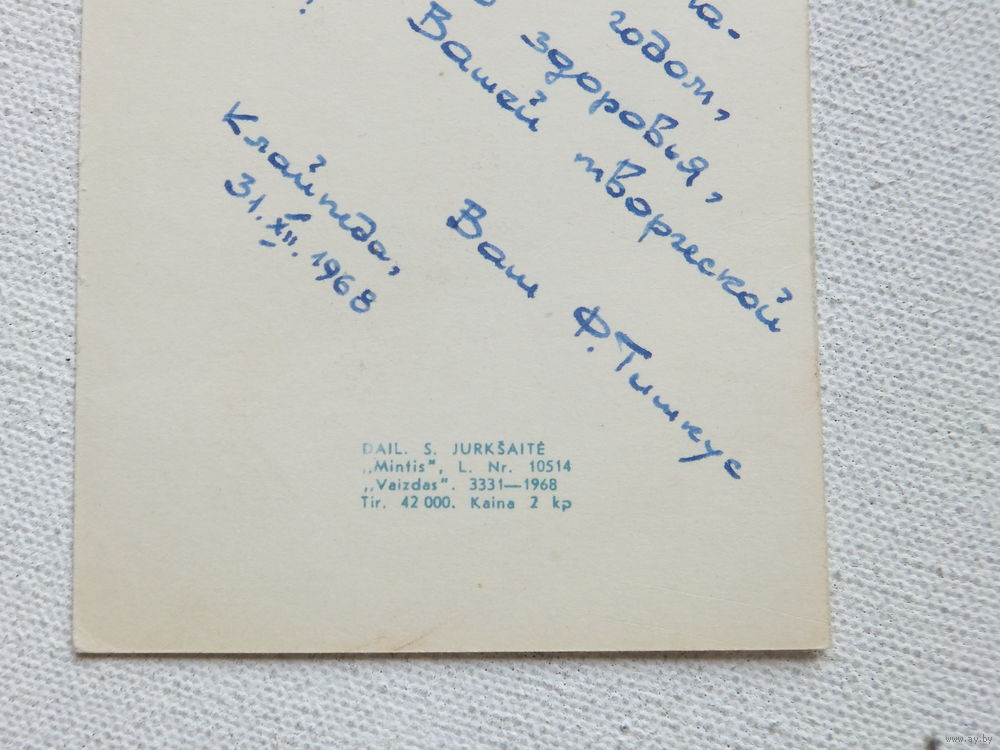 годом,
здоровья,
Вашей творческой
Ваш Ф. Тишкус
Клайпеда,
31.XII.1968
DAIL. S. JURKŠAITĖ
„Mintis", L. Nr. 10514
„Vaizdas". 3331—1968
Tir. 42 000. Kaina 2 kp
www.ay.by